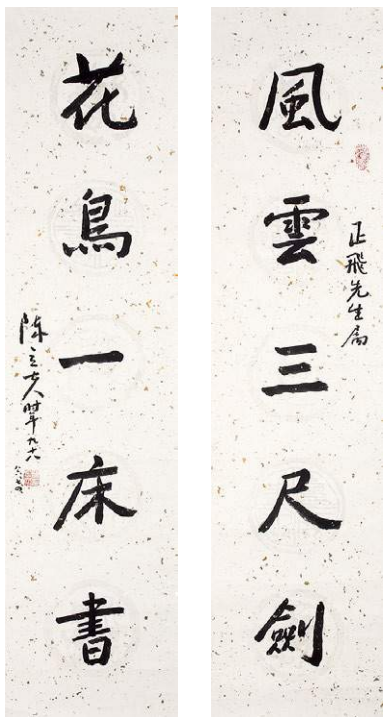 風雲三尺劍
正飛先生屬
花鳥一床書
陳立夫時年九十六